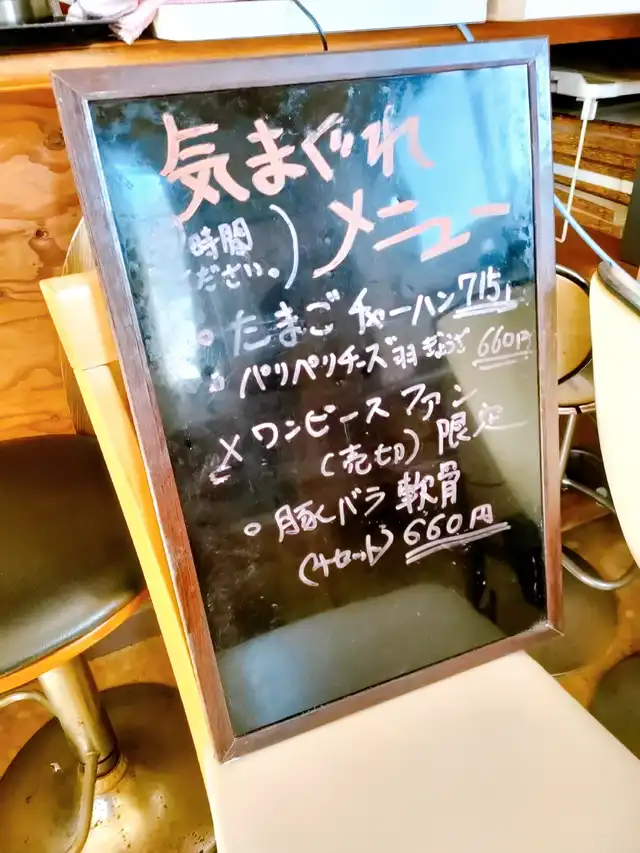 気まぐれ
メニュー
時間
ください。)
○ たまごチャーハン 715
○ パリパリチーズ羽ぎょうざ 660円
× ワンピースファン
(売切) 限定
○ 豚バラ軟骨
(4セット) 660円